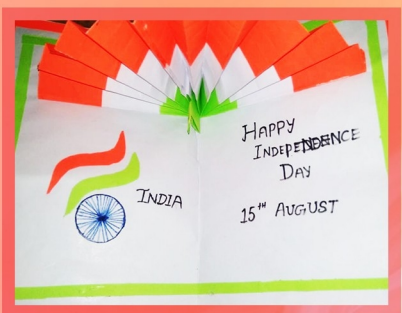 INDIA
HAPPY
INDEPENDENCE
DAY
15TH AUGUST